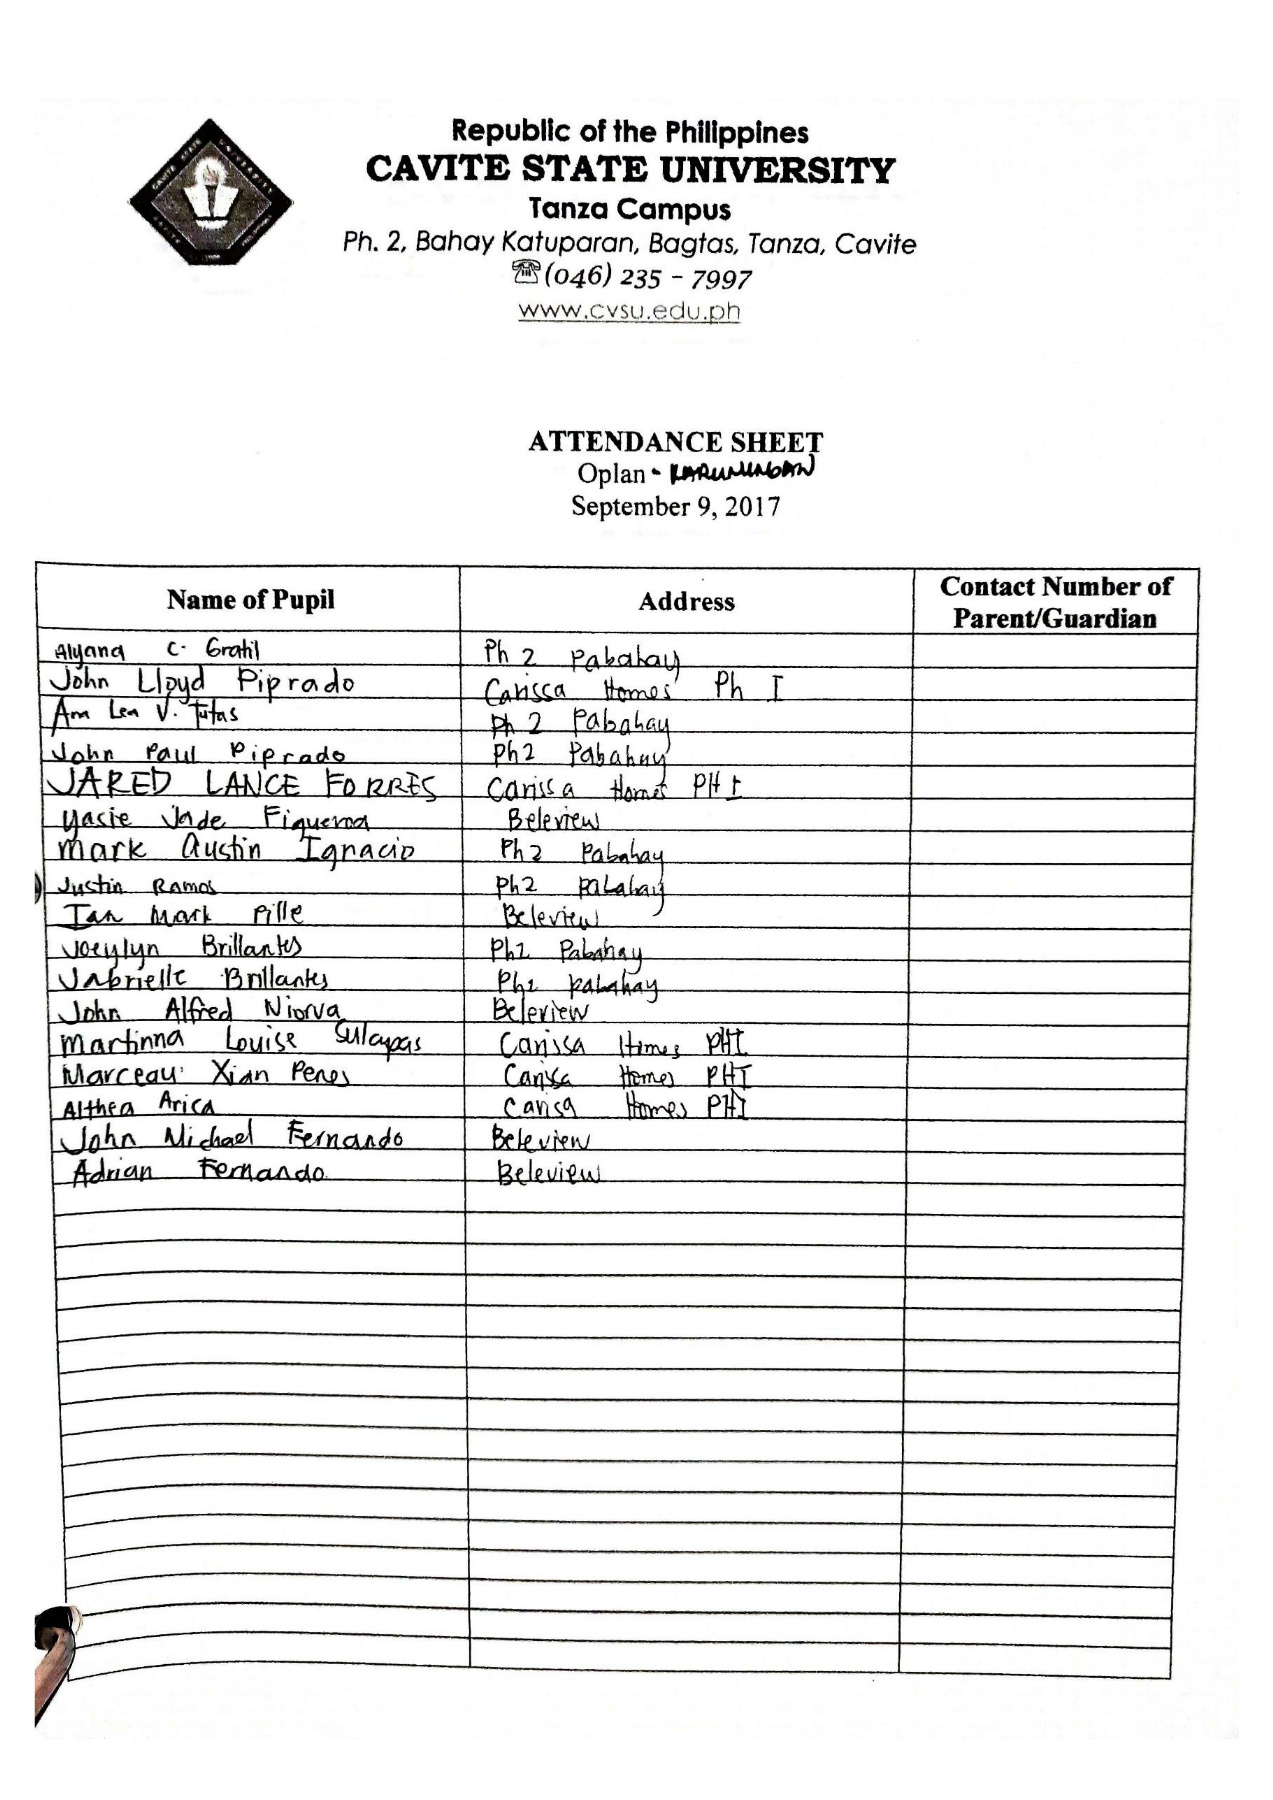 Republic of the Philippines
CAVITE STATE UNIVERSITY
Tanza Campus
Ph. 2, Bahay Katuparan, Bagtas, Tanza, Cavite
☎(046) 235 - 7997
www.cvsu.edu.ph
CAVITE STATE UNIVERSITY
ATTENDANCE SHEET
Oplan - KARUNUNGAN
September 9, 2017
Name of Pupil Address Contact Number of Parent/Guardian
Alyana C. Gratil Ph 2 Pabahay
John Lloyd Piprado Carissa Homes Ph I
Am Lea V. Tutas Ph 2 Pabahay
John Paul Piprado Ph2 Pabahay
JARED LANCE FORRES Carissa Homes PH I
Yasie Jade Figueroa Beleview
Mark Austin Ignacio Ph2 Pabahay
Justin Ramos Ph2 Pabahay
Ian Mark Pille Beleview
Joeylyn Brillantes Ph2 Pabahay
Jabrielle Brillantes Ph2 Pabahay
John Alfred Niorva Beleview
Martinna Louise Sulapas Carissa Homes PHI
Marceau Xian Penes Carissa Homes PHI
Althea Arica Carisa Homes PHI
John Michael Fernando Beleview
Adrian Fernando Beleview